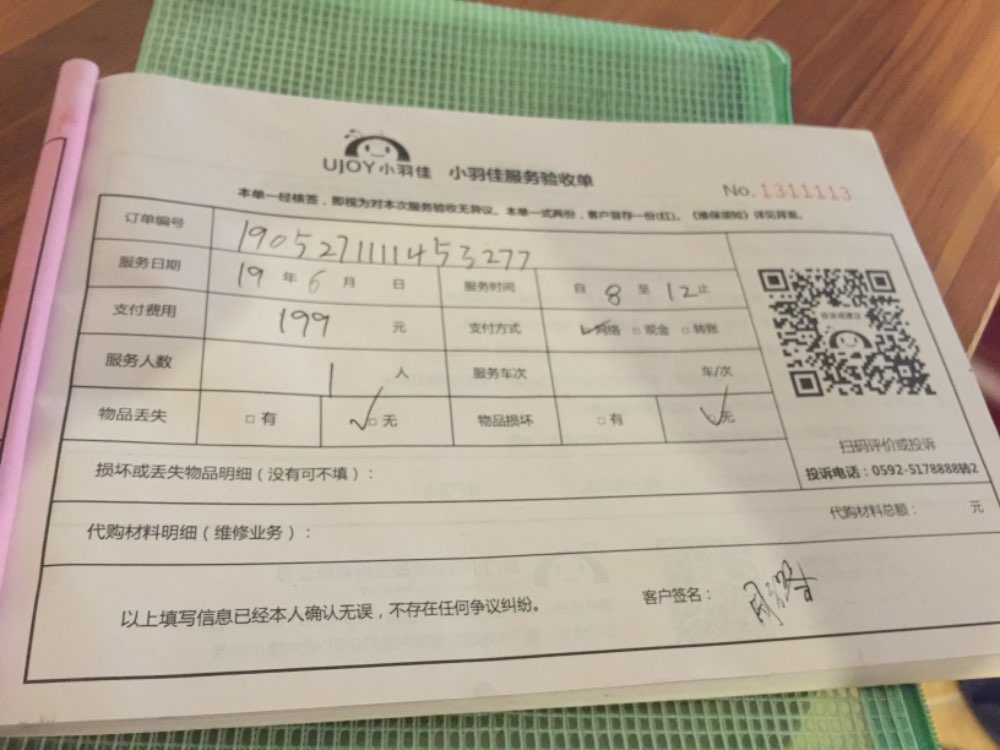 UJOY小羽佳 小羽佳服务验收单
No.1311113
本单一经核签，即视为对本次服务验收无异议。本单一式两份，客户留存一份(红)。《维保须知》详见背面。
订单编号 1905271111453277
服务日期 19 年 6 月 日 服务时间 自 8 至 12 止
支付费用 199 元 支付方式 ☑网络 □现金 □转账
服务人数 1 人 服务车次 车/次
物品丢失 □有 ☑无 物品损坏 □有 ☑无
投诉或建议
扫码评价或投诉
投诉电话：0592-5178888转2
损坏或丢失物品明细（没有可不填）：
代购材料明细（维修业务）： 代购材料总额： 元
以上填写信息已经本人确认无误，不存在任何争议纠纷。 客户签名：